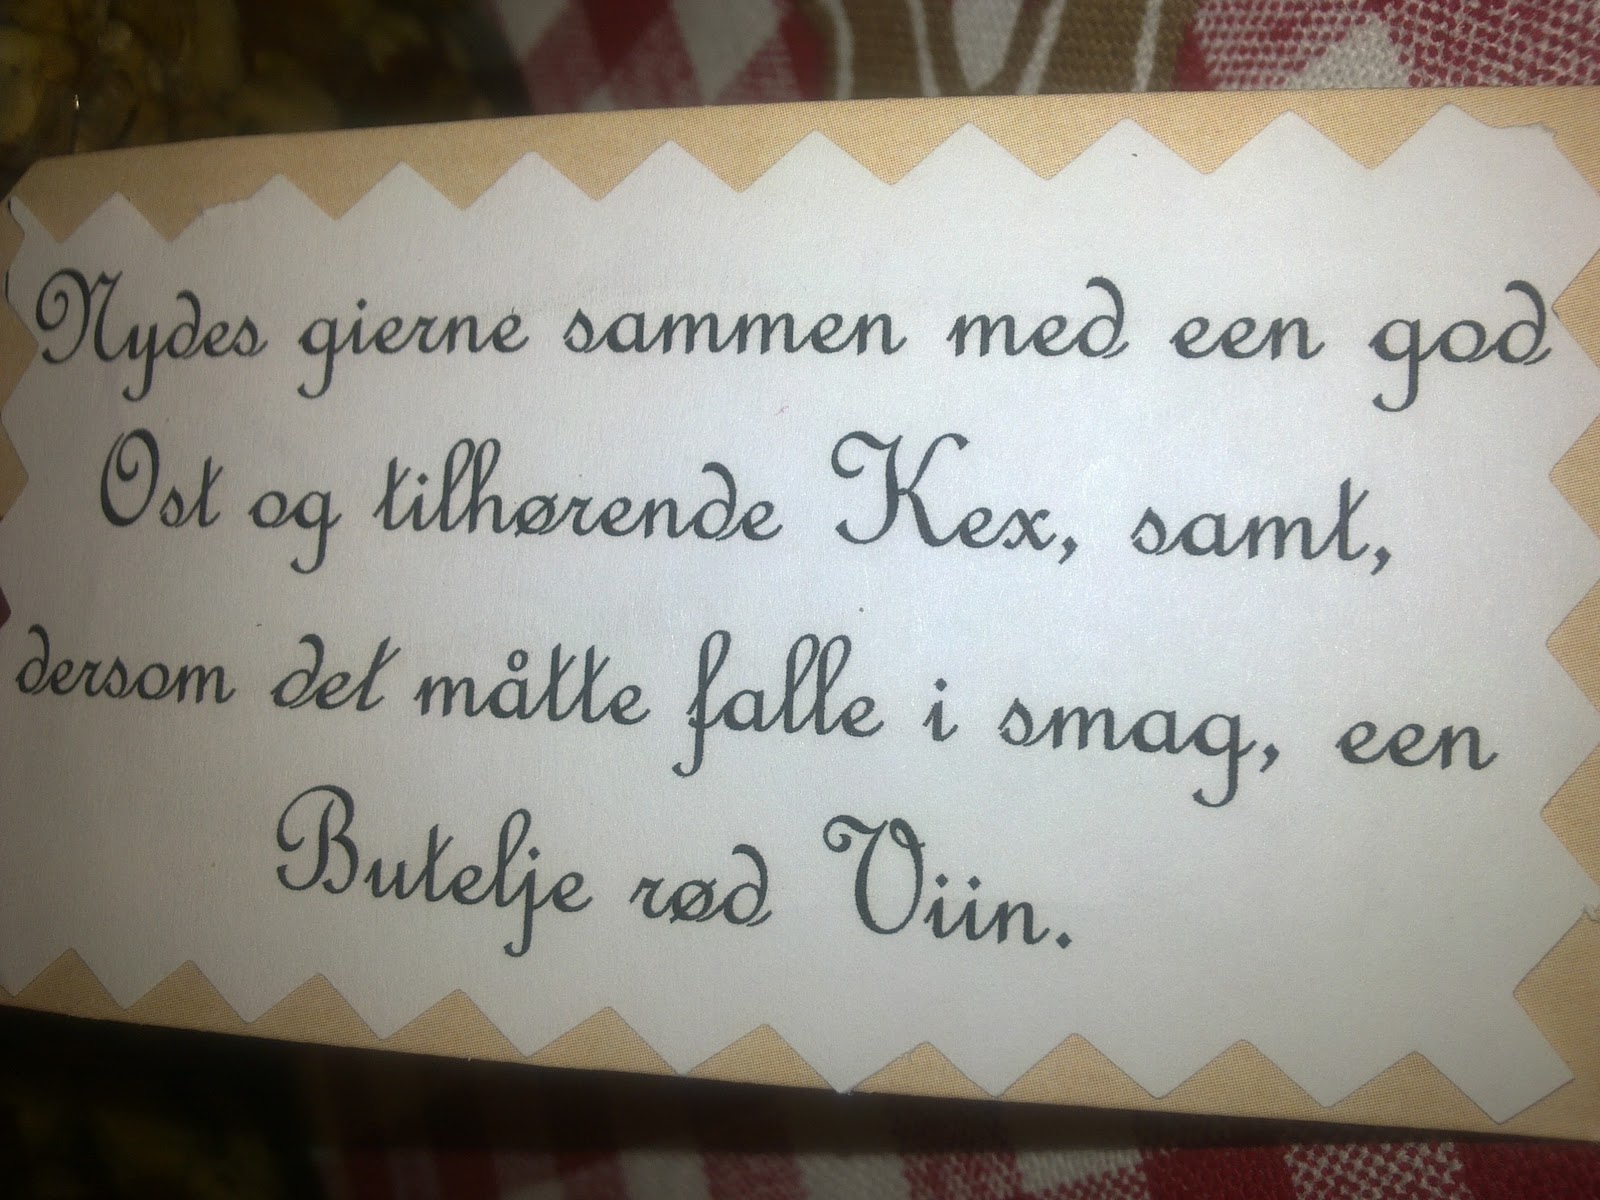 Nydes gierne sammen med een god
Ost og tilhørende Kex, samt,
dersom det måtte falle i smag, een
Butelje rød Viin.